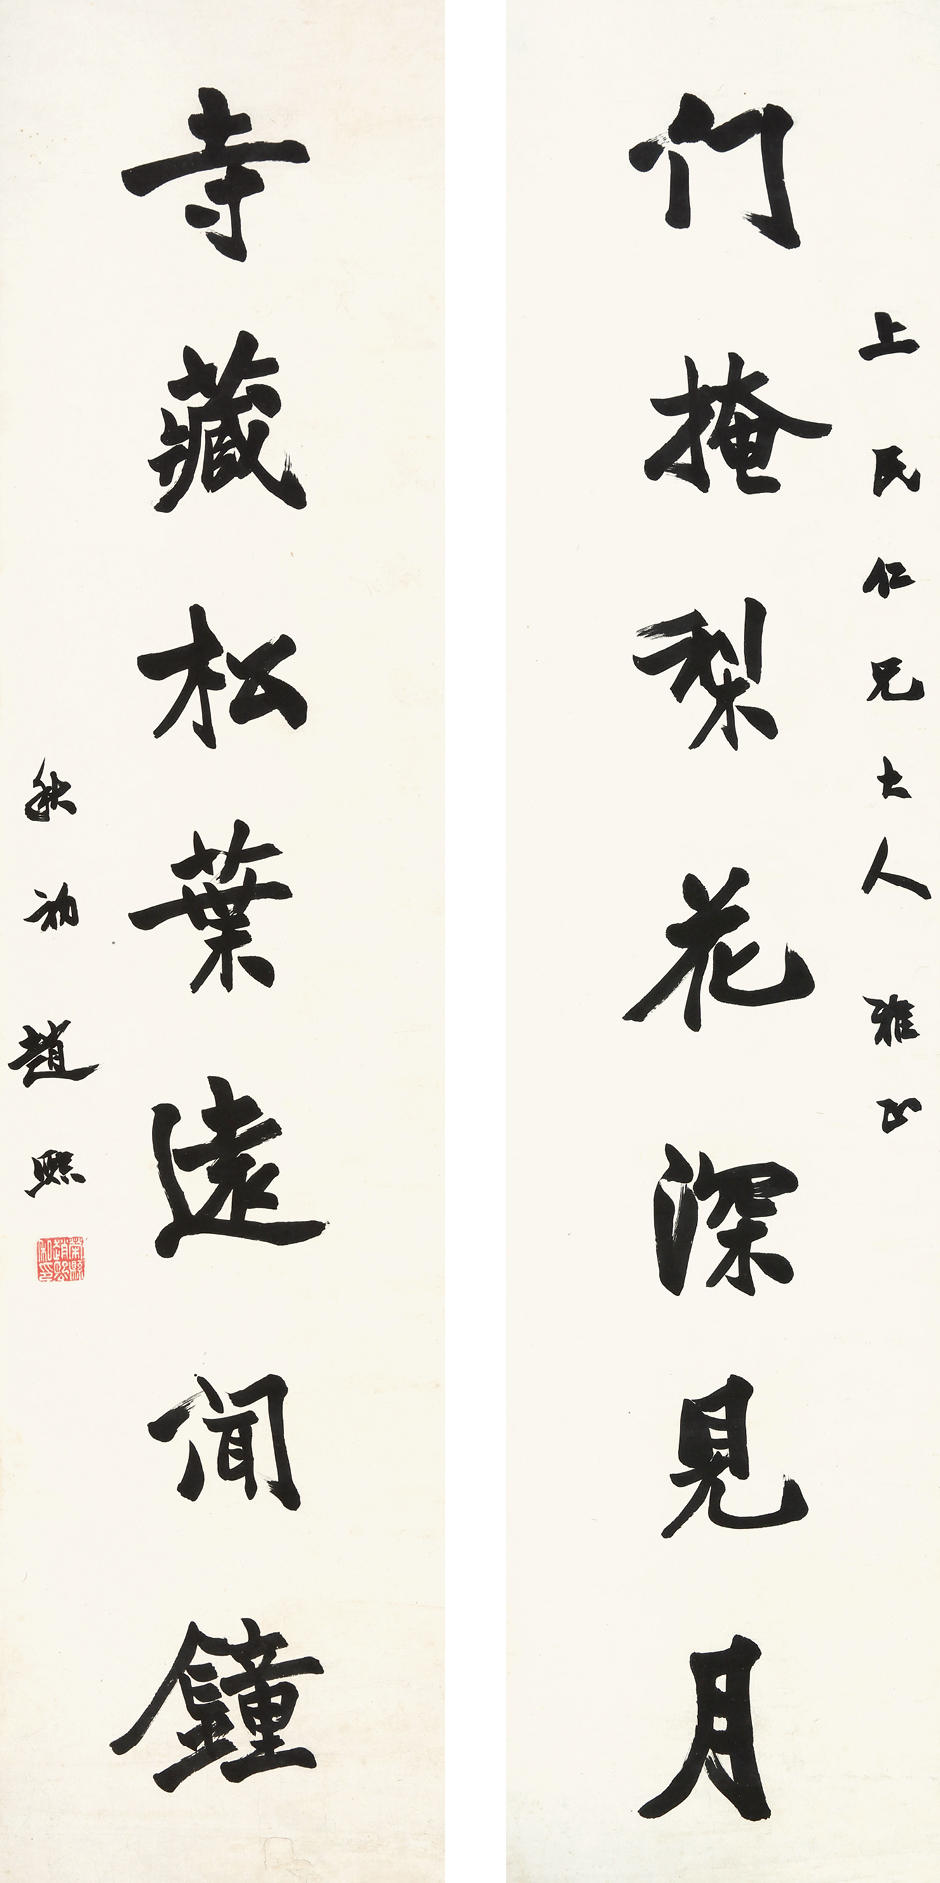 上民仁兄大人雅正
门掩梨花深見月
寺藏松葉遠聞鐘
秋初趙熙